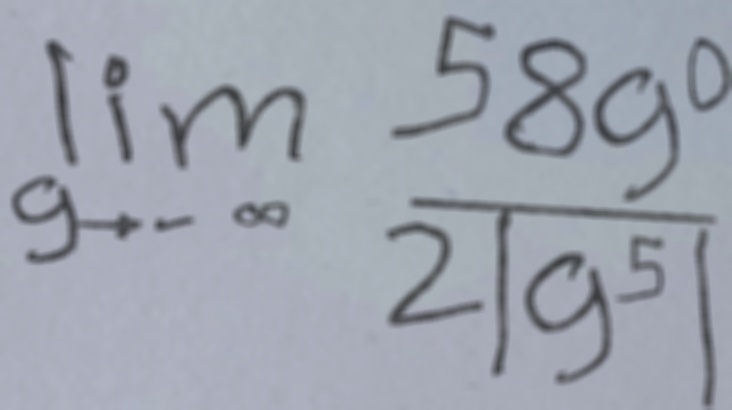 lim 58g⁰
g→-∞ 2|g⁵|